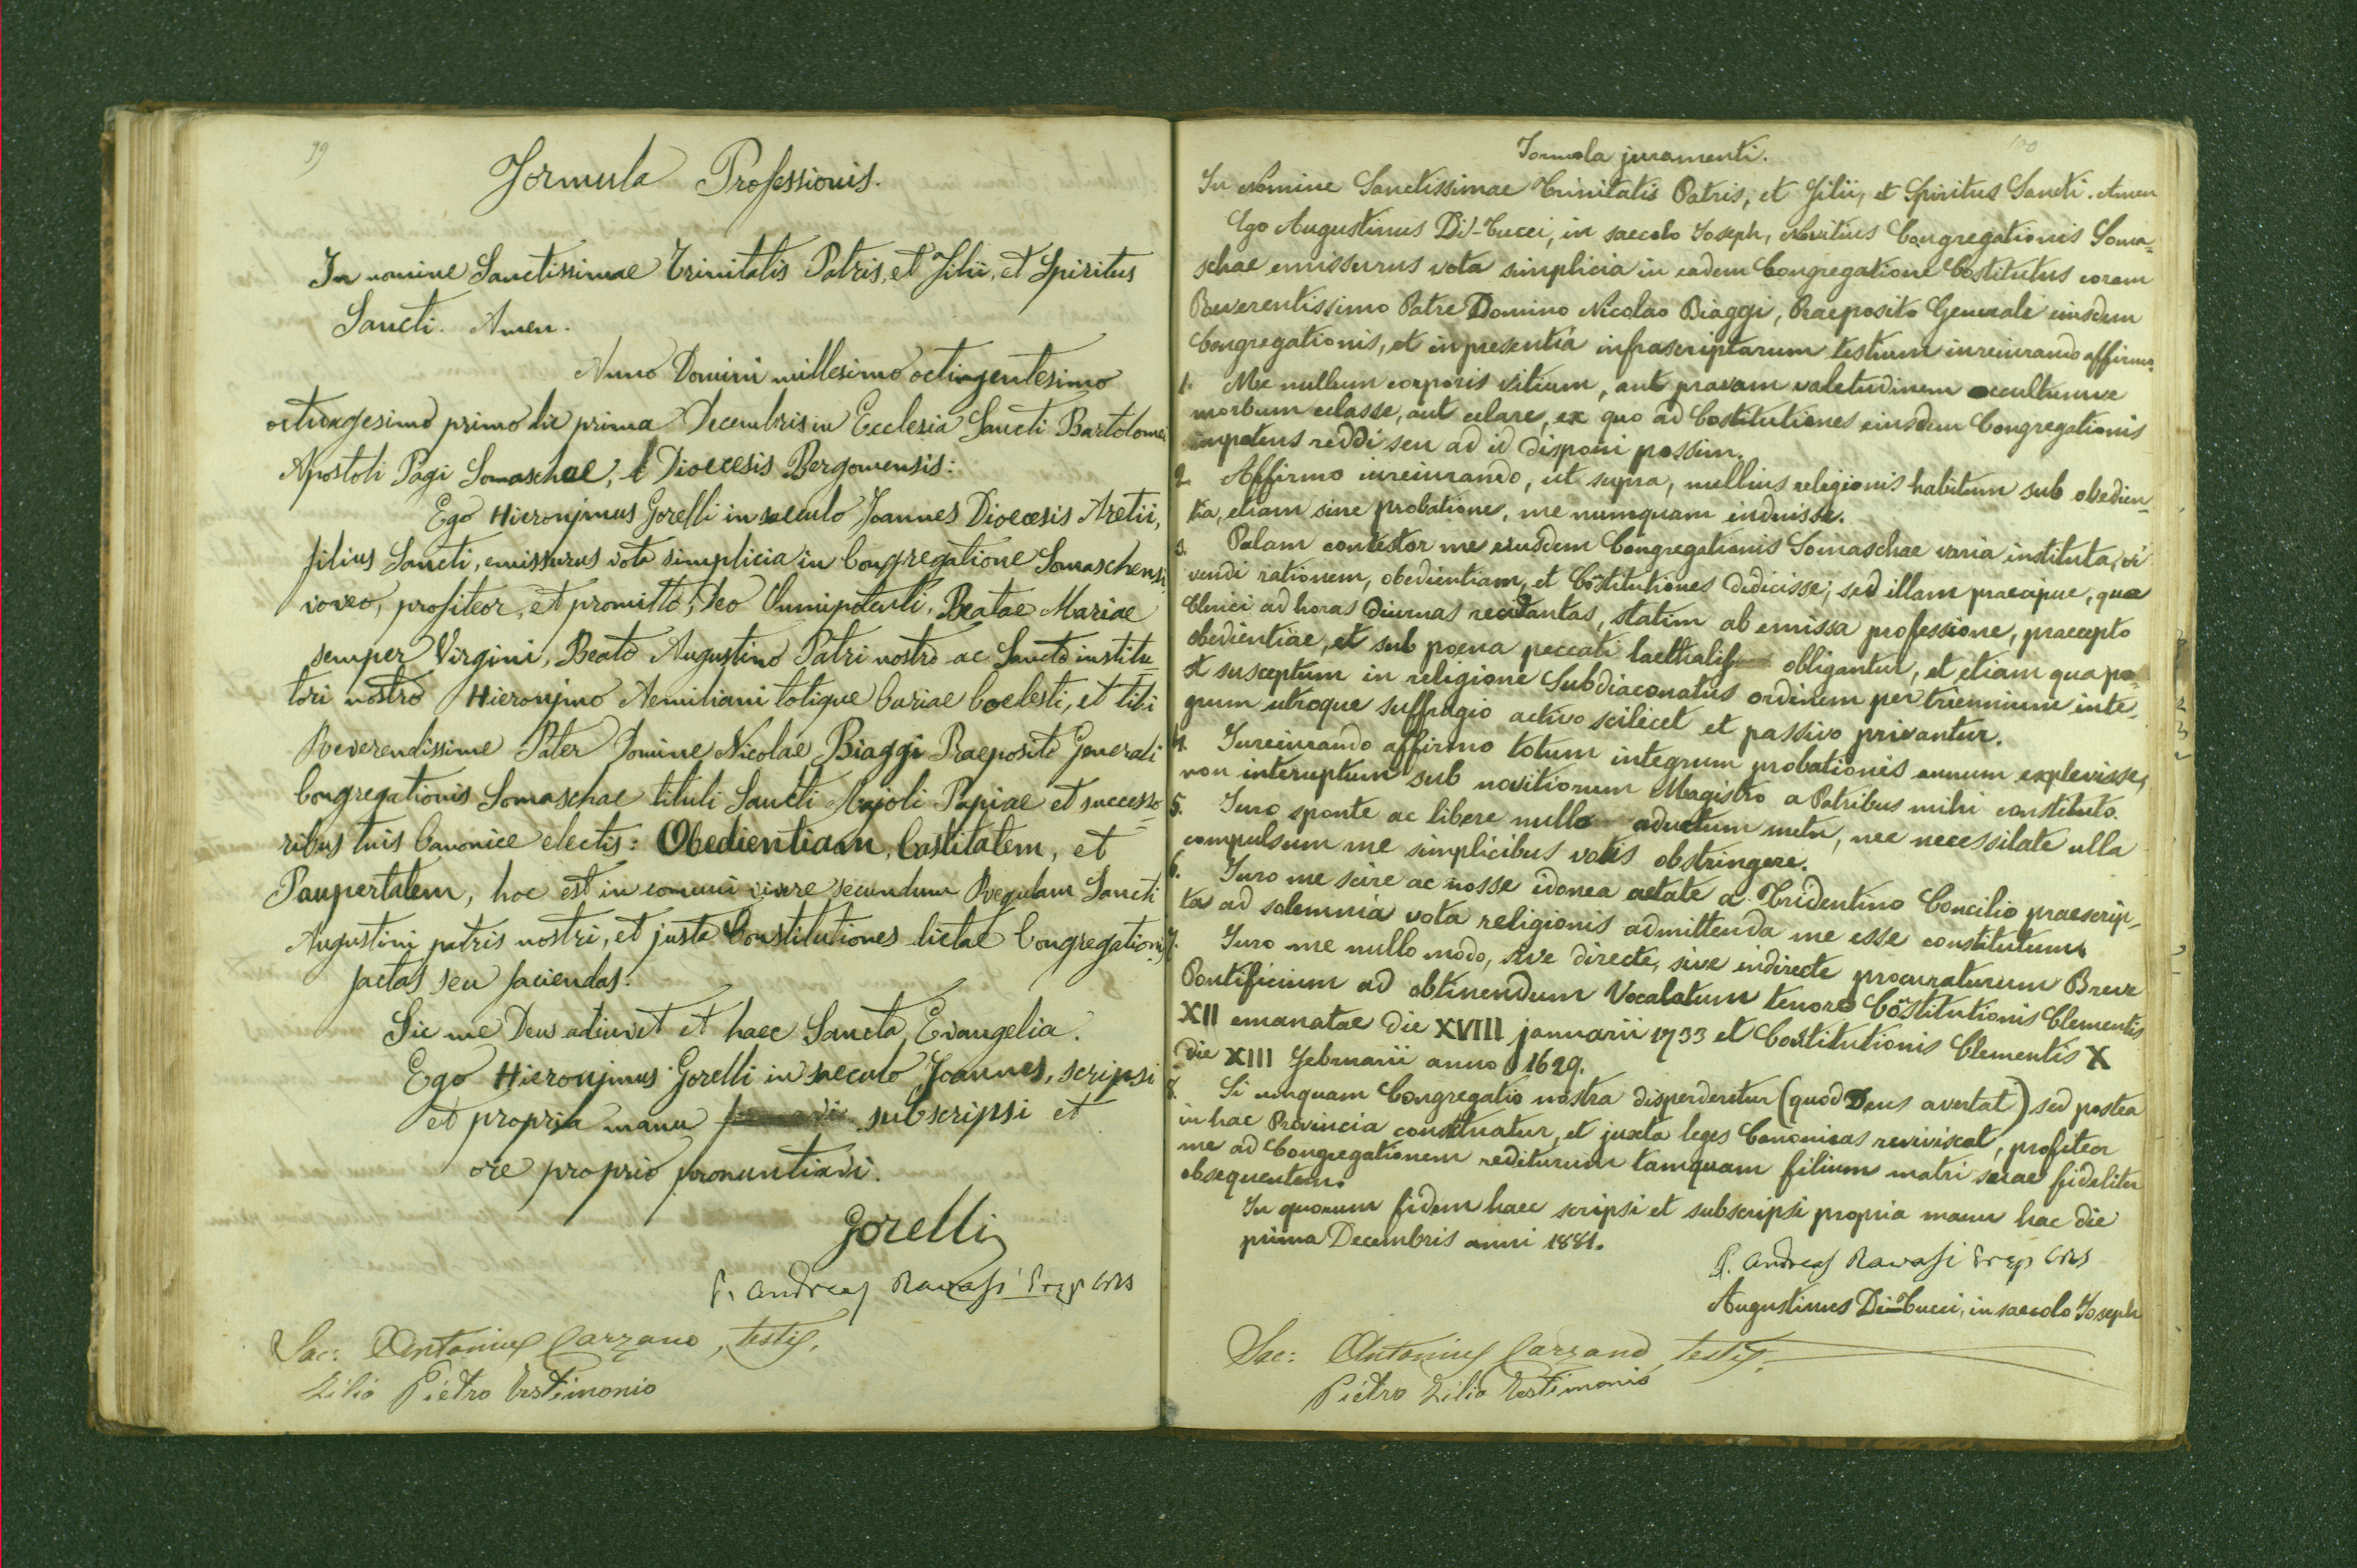 99
Formula Professionis.
In nomine Sanctissimae Trinitatis Patris, et Filii, et Spiritus
Sancti. Amen.
Anno Domini millesimo octingentesimo
octuagesimo primo die prima Decembris in Ecclesia Sancti Bartolomei
Apostoli Pagi Somaschae, Dioecesis Bergomensis:
Ego Hieronjmus Gorelli in saeculo Joannes Dioecesis Aretii,
filius Sancti, emissurus vota simplicia in Congregatione Somaschensi
voveo, profiteor, et promitto, Deo Omnipotenti, Beatae Mariae
semper Virgini, Beato Augustino Patri nostro ac Sancto institu-
tori nostro Hieronjmo Aemiliani totique Curiae Coelesti, et tibi
Reverendissime Pater Domine Nicolae Biaggi Praeposite Generali
Congregationis Somaschae tituli Sancti Majoli Papiae et successo-
ribus tuis Canonice electis: Obedientiam, Castitatem, et
Paupertatem, hoc est in comuni vivere secundum Regulam Sancti
Augustini patris nostri, et justa Constitutiones dictae Congregationis
factas seu faciendas.
Sic me Deus adiuvet et haec Sancta Evangelia.
Ego Hieronjmus Gorelli in saeculo Joannes, scripsi
et propria manu subscripsi et
ore proprio pronuntiavi.
Gorelli
P. Andreas Ravasi Prep CRS
Sac: Antonius Carzano, testis,
Zilio Pietro Testimonio
100
Formola juramenti.
In Nomine Sanctissimae Trinitatis Patris, et Filii, et Spiritus Sancti. Amen
Ego Augustinus Di-Tucci, in saecolo Joseph, Novitius Congregationis Soma-
schae emissurus vota simplicia in eadem Congregatione Costitutus coram
Reverentissimo Patre Domino Nicolao Biaggi, Praeposito Generale eiusdem
Congregationis, et in presentia infrascriptarum testium iureiurando affirmo.
1. Me nullum corporis vitium, aut pravam valetudinem occultumve
morbum celasse, aut celare, ex quo ad Costitutiones eiusdem Congregationis
impotens reddi seu ad id disponi possim.
2. Affirmo iureiurando, ut supra, nullius religionis habitum sub obedien-
tia, etiam sine probatione, me numquam induisse.
3. Palam contestor me eiusdem Congregationis Somaschae varia instituta, vi
vendi rationem, obedientiam, et Cõstitutiones dedicisse; sed illam praecipue, qua
Clerici ad horas Diurnas recitantas, statim ab emissa professione, praecepto
obedientiae, et sub poena peccati laethalis obligantur, et etiam qua po-
st susceptum in religione Subdiaconatus ordinem per triennium inte-
grum utroque suffragio activo scilicet et passivo privantur.
4. Iureiurando affirmo totum integrum probationis annum explevisse,
non interuptum sub novitiorum Magistro a Patribus mihi constituto.
5. Iuro sponte ac libere nullo aductum metu, nec necessitate ulla
compulsum me simplicibus votis obstringere.
6. Iuro me scire ac nosse idonea aetate a Tridentino Concilio praescrip-
ta ad solemnia vota religionis admittenda me esse constitutum.
7. Iuro me nullo modo, sive directe, sive indirecte procuraturum Breve
Pontificium ad obtinendum Vocalatum tenore Cõstitutionis Clementis
XII emanatae die XVIII januarii 1733 et Costitutionis Clementis X
die XIII Februarii anno 1629.
8. Si unquam Congregatio nostra disperderetur (quod Deus avertat) sed postea
in hac Provincia constituatur, et juxta leges Canonicas reviviscat, profiteor
me ad Congregationem rediturum tamquam filium matri suae fideliter
obsequentem.
In quorum fidem haec scripsi et subscripsi propria manu hac die
prima Decembris anni 1881.
P. Andreas Ravasi Prep CRS
Augustinus Di-Tucci, in saecolo Joseph
Sac: Antonius Carzano, testis,
Pietro Zilio Testimonio